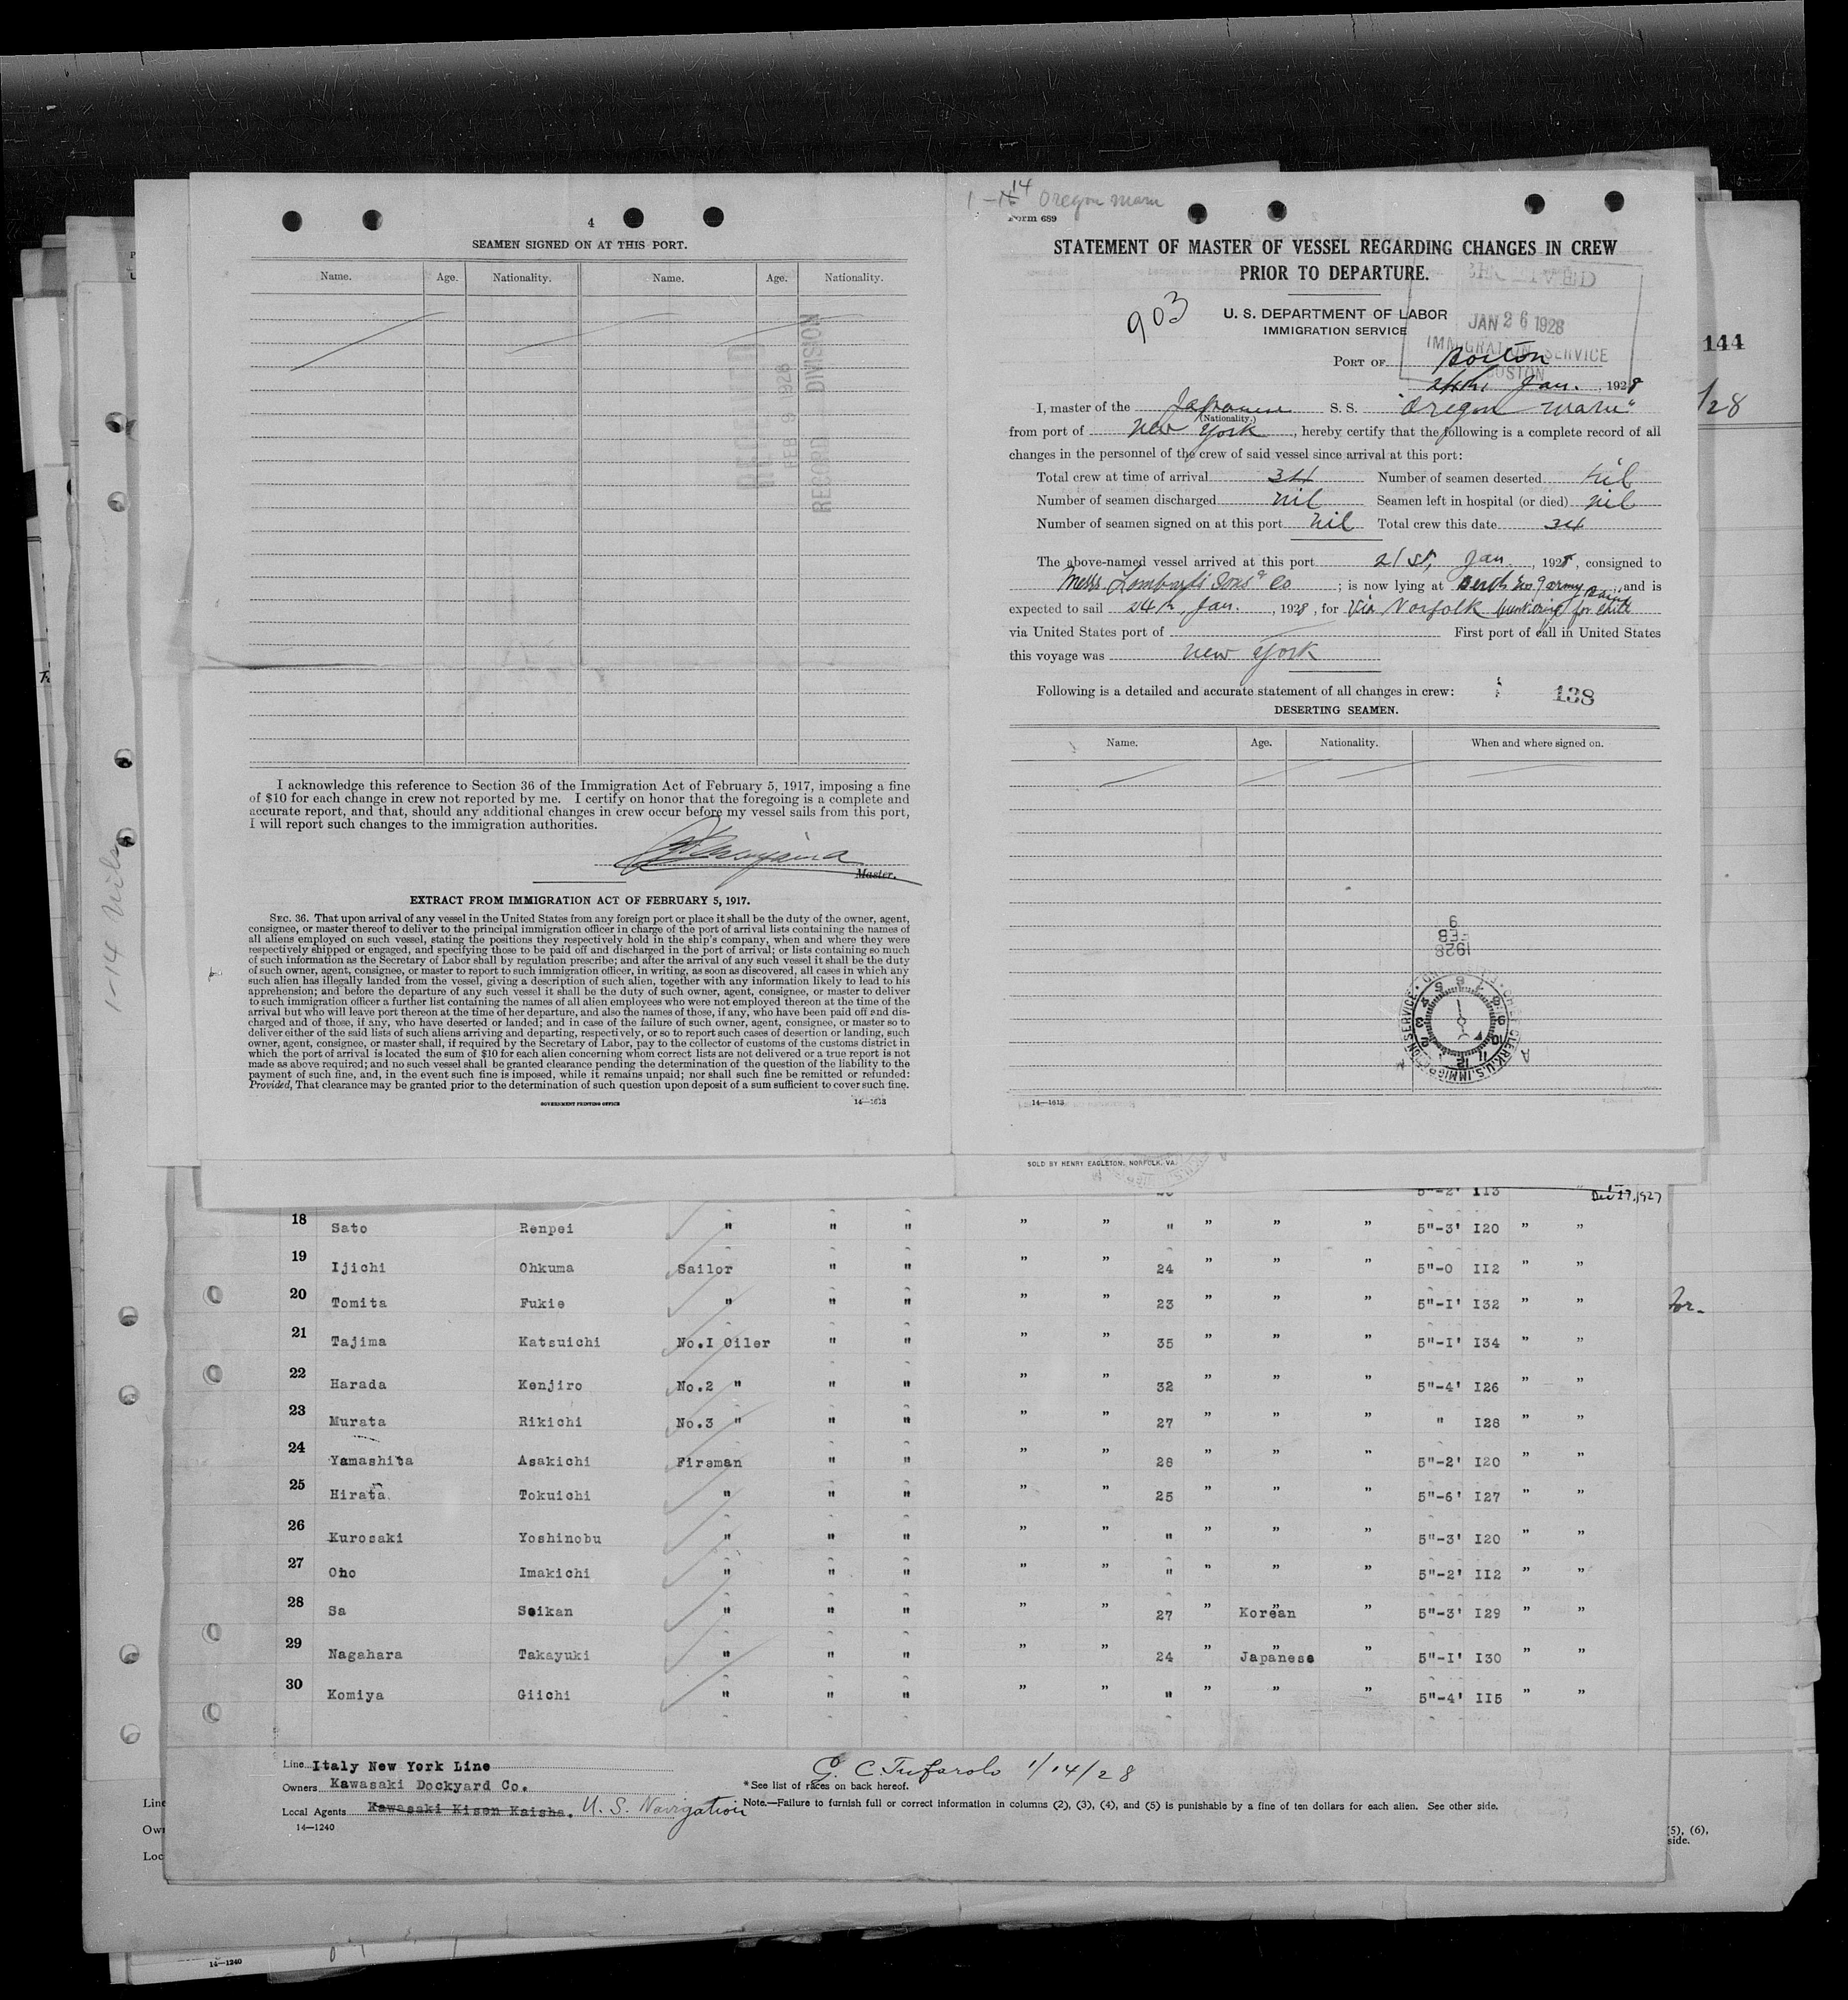 4
SEAMEN SIGNED ON AT THIS PORT.
Name. Age. Nationality. Name. Age. Nationality.
RECORD DIVISION
FEB 9 1928
I acknowledge this reference to Section 36 of the Immigration Act of February 5, 1917, imposing a fine
of $10 for each change in crew not reported by me. I certify on honor that the foregoing is a complete and
accurate report, and that, should any additional changes in crew occur before my vessel sails from this port,
I will report such changes to the immigration authorities.
Master.
EXTRACT FROM IMMIGRATION ACT OF FEBRUARY 5, 1917.
SEC. 36. That upon arrival of any vessel in the United States from any foreign port or place it shall be the duty of the owner, agent,
consignee, or master thereof to deliver to the principal immigration officer in charge of the port of arrival lists containing the names of
all aliens employed on such vessel, stating the positions they respectively hold in the ship's company, when and where they were
respectively shipped or engaged, and specifying those to be paid off and discharged in the port of arrival; or lists containing so much
of such information as the Secretary of Labor shall by regulation prescribe; and after the arrival of any such vessel it shall be the duty
of such owner, agent, consignee, or master to report to such immigration officer, in writing, as soon as discovered, all cases in which any
such alien has illegally landed from the vessel, giving a description of such alien, together with any information likely to lead to his
apprehension; and before the departure of any such vessel it shall be the duty of such owner, agent, consignee, or master to deliver
to such immigration officer a further list containing the names of all alien employees who were not employed thereon at the time of the
arrival but who will leave port thereon at the time of her departure, and also the names of those, if any, who have been paid off and dis-
charged and of those, if any, who have deserted or landed; and in case of the failure of such owner, agent, consignee, or master so to
deliver either of the said lists of such aliens arriving and departing, respectively, or so to report such cases of desertion or landing, such
owner, agent, consignee, or master shall, if required by the Secretary of Labor, pay to the collector of customs of the customs district in
which the port of arrival is located the sum of $10 for each alien concerning whom correct lists are not delivered or a true report is not
made as above required; and no such vessel shall be granted clearance pending the determination of the question of the liability to the
payment of such fine, and, in the event such fine is imposed, while it remains unpaid; nor shall such fine be remitted or refunded:
Provided, That clearance may be granted prior to the determination of such question upon deposit of a sum sufficient to cover such fine.
GOVERNMENT PRINTING OFFICE 14—1613
1-14 Oregon Maru
Form 689
STATEMENT OF MASTER OF VESSEL REGARDING CHANGES IN CREW
PRIOR TO DEPARTURE.
903
U. S. DEPARTMENT OF LABOR
IMMIGRATION SERVICE
JAN 26 1928
IMMIGRATION SERVICE
BOSTON
PORT OF Boston
24th Jan., 1928
I, master of the Japanese S. S. "Oregon Maru"
(Nationality.)
from port of New York, hereby certify that the following is a complete record of all
changes in the personnel of the crew of said vessel since arrival at this port:
Total crew at time of arrival 34 Number of seamen deserted nil
Number of seamen discharged nil Seamen left in hospital (or died) nil
Number of seamen signed on at this port nil Total crew this date 34
The above-named vessel arrived at this port 21st, Jan., 1928, consigned to
Messrs Lombard's Sons & Co; is now lying at Berth No 9 Army Base, and is
expected to sail 24th, Jan., 1928, for Via Norfolk bunkering for
via United States port of First port of call in United States
this voyage was New York
Following is a detailed and accurate statement of all changes in crew:
138
DESERTING SEAMEN.
Name. Age. Nationality. When and where signed on.
9
FEB
1928
14—1613
144
1/28
1-14 Nils
SOLD BY HENRY EAGLETON, NORFOLK, VA.
5"-2' 113 Dec 27, 1927
18 Sato Renpei " " " " " " " " " 5"-3' I20 " "
19 Ijichi Ohkuma Sailor " " " " 24 " " " 5"-0 II2 " "
20 Tomita Fukie " " " " " 23 " " " 5"-I' I32 " "
21 Tajima Katsuichi No.I Oiler " " " " 35 " " " 5"-I' I34 " "
22 Harada Kenjiro No.2 " " " " " 32 " " " 5"-4' I26 " "
23 Murata Rikichi No.3 " " " " " 27 " " " " I28 " "
24 Yamashita Asakichi Fireman " " " " 28 " " " 5"-2' I20 " "
25 Hirata Tokuichi " " " " " 25 " " " 5"-6' I27 " "
26 Kurosaki Yoshinobu " " " " " " " " " 5"-3' I20 " "
27 Oho Imakichi " " " " " " " " " 5"-2' II2 " "
28 Sa Seikan " " " " " 27 " Korean " 5"-3' I29 " "
29 Nagahara Takayuki " " " " " 24 " Japanese " 5"-I' I30 " "
30 Komiya Giichi " " " " " " " " " 5"-4' II5 " "
Line Italy New York Line
Owners Kawasaki Dockyard Co.
Local Agents Kawasaki Kisen Kaisha. U. S. Navigation
14—1240
G. C. Tufarolo 1/14/28
*See list of races on back hereof.
Note.—Failure to furnish full or correct information in columns (2), (3), (4), and (5) is punishable by a fine of ten dollars for each alien. See other side.
Line
Own
Loc
(5), (6),
side.
14—1240